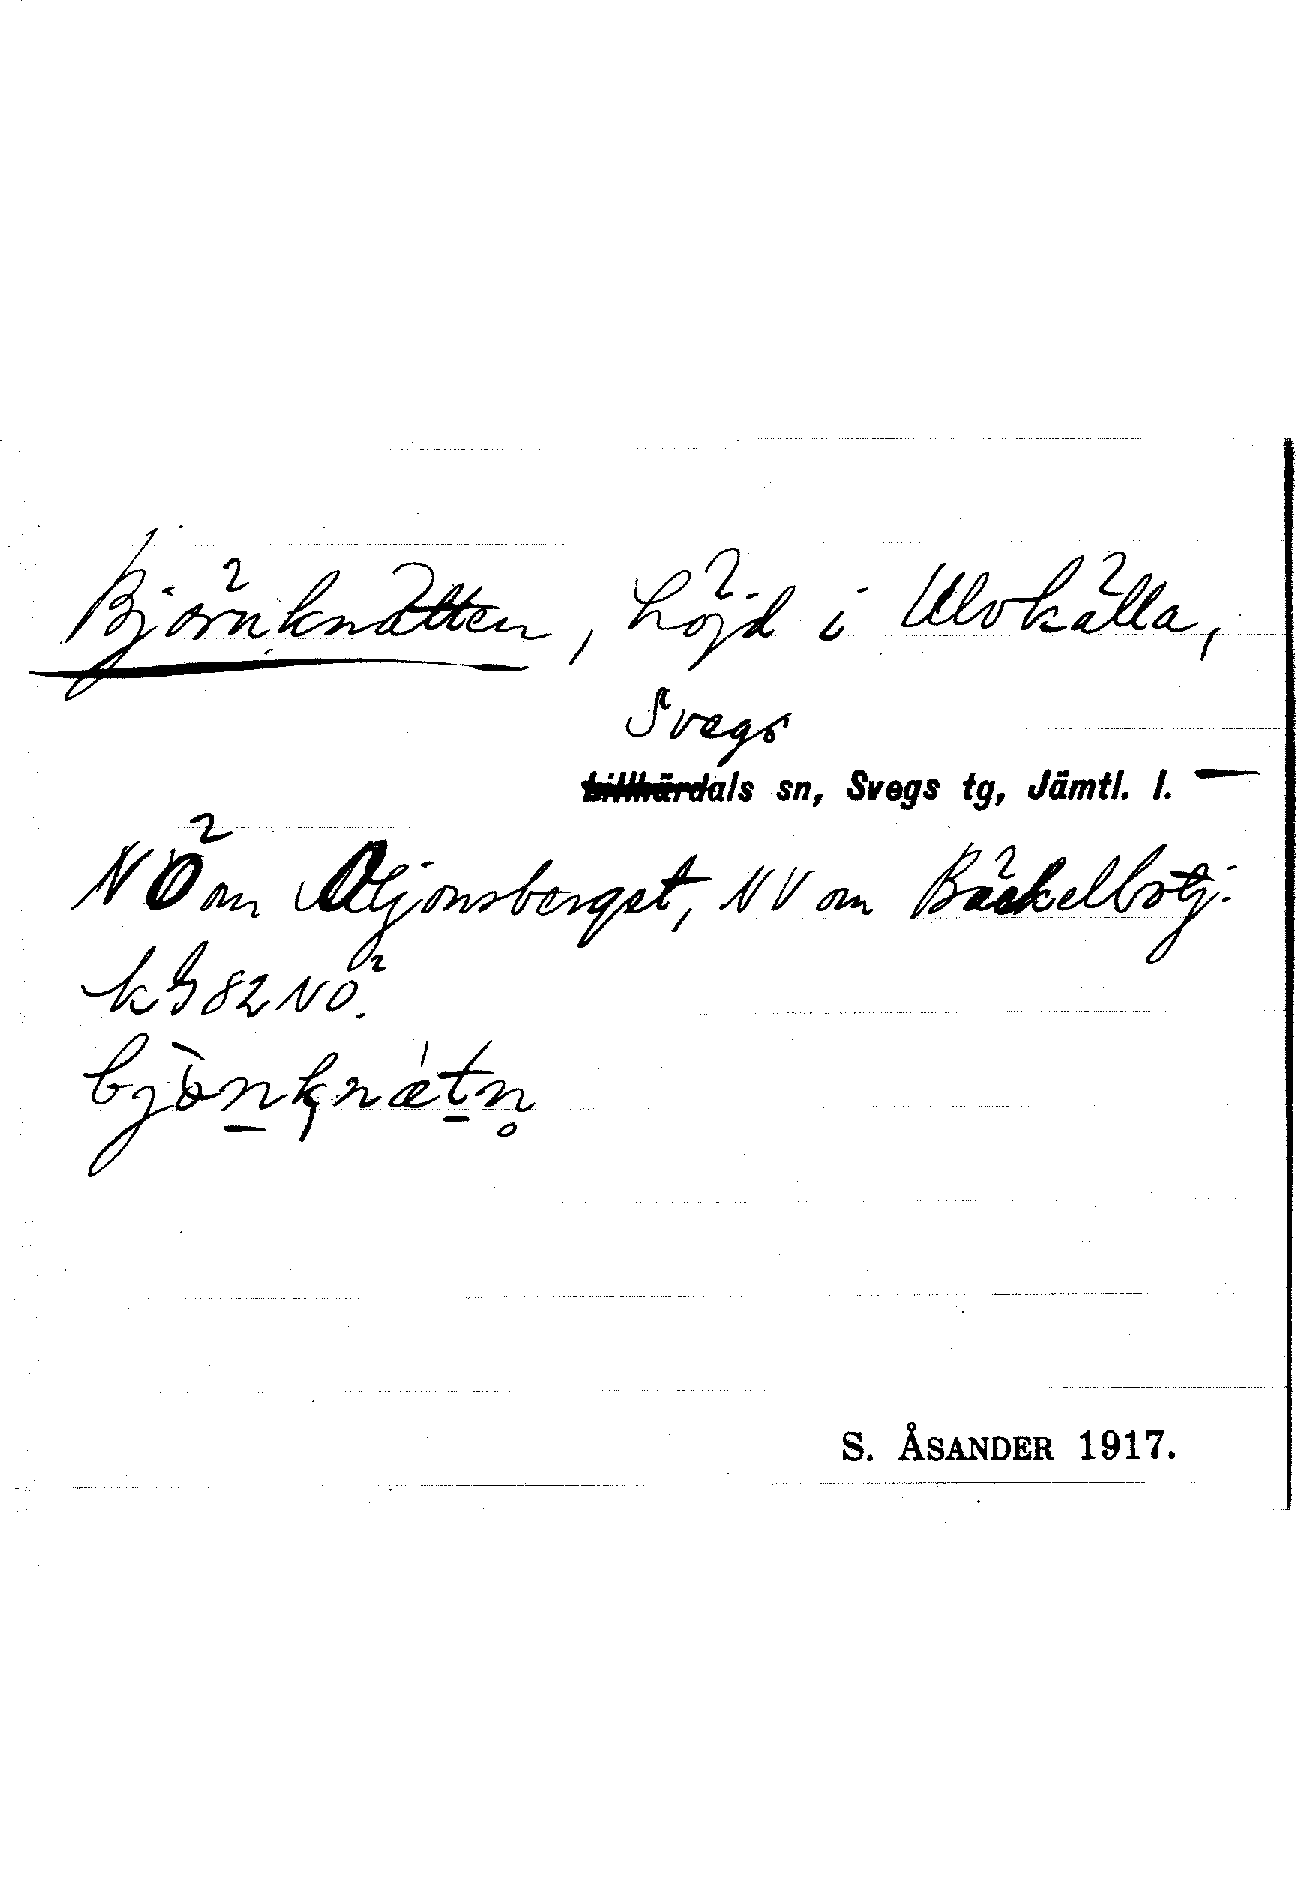 Björnknätten, höjd i Ulvkälla,
Svegs
Lillhärdals sn, Svegs tg, Jämtl. l. —
NÖ om Oljonsberget, NV om Bäckelbstj.
k 82 NÖ.
bjònknǽtn̥
S. ÅSANDER 1917.